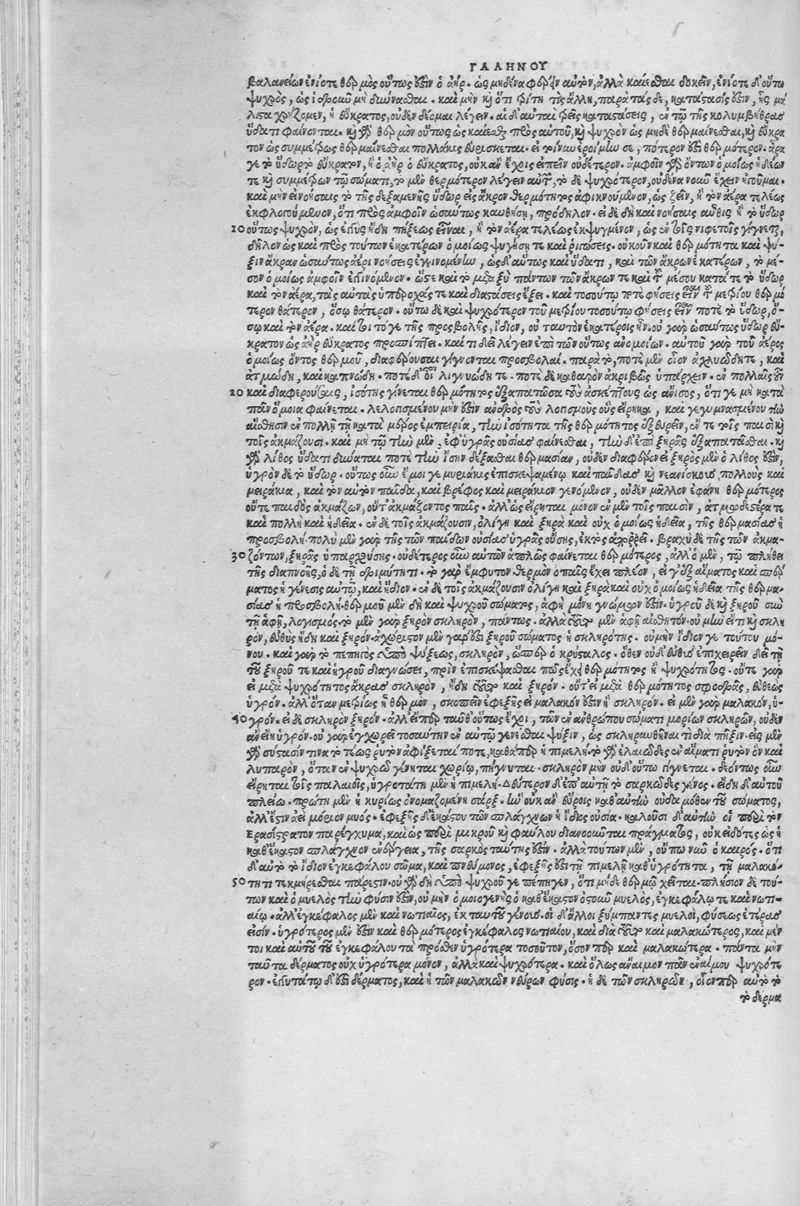 ΓΑΛΗΝΟΥ
βαλανείων ἐνίοτε θερμὸς οὕτως ἐστὶν ὁ ἀὴρ, ὡς μηδένα φέρειν αὐτὸν, ἀλλὰ καίεσθαι δοκεῖν, ἐνίοτε δ' οὕτω
ψυχρὸς, ὡς ἱδροῦν μὴ δύνασθαι. καὶ μὴν καὶ ὅτι τρίτη τὶς ἄλλη, παρὰ τάσδε, κατάστασίς ἐστιν, ἧς μά
λιστα χρῄζομεν, ἡ εὔκρατος, οὐδὲν δέομαι λέγειν. αἱ δ' αὐταὶ τρεῖς καταστάσεις, ἐν τῷ τῆς κολυμβήθρας
ὕδατι φαίνονται. καὶ γὰρ θερμὸν οὕτως ὡς καίεσθαι πρὸς αὐτοῦ, καὶ ψυχρὸν ὡς μηδὲ θερμαίνεσθαι, καὶ εὔκρα
τον ὡς συμμέτρως θερμαίνεσθαι πολλάκις εὑρίσκεται. εἰ τοίνυν ἐροίμην σε, πότερόν ἐστι θερμότερον. ἆρα
γε τὸ ὕδωρ τὸ εὔκρατον, ἢ ὁ ἀὴρ ὁ εὔκρατος, οὐκ ἂν ἔχοις εἰπεῖν οὐδέτερον. ἀμφοῖν γὰρ ὄντων ὁμοίως ἡδέων
τε καὶ συμμέτρων τῷ σώματι, τὸ μὲν θερμότερον λέγειν αὐτῶν, τὸ δὲ ψυχρότερον, οὐδένα νοῦν ἔχειν ἡγοῦμαι.
καὶ μὴν εἰ νοήσεις τὸ τῆς δεξαμενῆς ὕδωρ εἰς ἄκραν θερμότητα ἀφικνούμενον, ὡς ζεῖν, ἢ τὸν ἀέρα τελέως
ἐκφλογούμενον, ὅτι πρὸς ἀμφοῖν ὡσαύτως καυθήσῃ, πρόδηλον. εἰ δὲ δὴ καὶ νοήσεις αὖθις ἢ τὸ ὕδωρ
10 οὕτως ψυχρὸν, ὡς ἐγγὺς ἤδη πήξεως εἶναι, ἢ τὸν ἀέρα τελέως ἐκψυγμένον, ὡς ἐν τοῖς νιφετοῖς γίγνεται,
δῆλον ὡς καὶ πρὸς τούτων ἑκατέρων ὁμοίως ψυγήσῃ τε καὶ ῥιγώσεις. οὐκοῦν καὶ θερμότητα καὶ ψύ-
ξιν ἄκραν ὡσαύτως ἀέρι νοήσεις ἐγγινομένην, ὡς δ' αὕτως καὶ ὕδατι, καὶ τῶν ἄκρων ἑκατέρων, τὸ μέ-
σον ὁμοίως ἀμφοῖν ἐγγινόμενον. ὥστε καὶ τὸ μεταξὺ πάντων τῶν ἄκρων τε καὶ τοῦ μέσου κατά τε τὸ ὕδωρ
καὶ τὸν ἀέρα, τὰς αὐτὰς ὑπεροχάς τε καὶ διαστάσεις ἕξει. καὶ τοσούτῳ ποτὲ φήσεις εἶναι τοῦ μετρίου θερμό
τερον θάτερον, ὅσῳ θάτερον. οὕτω δὲ καὶ ψυχρότερον τοῦ μετρίου τοσούτῳ φήσεις εἶναί ποτε τὸ ὕδωρ, ὅ-
σῳ καὶ τὸν ἀέρα. καίτοι τό γε τῆς προσβολῆς, ἴδιον, οὐ ταυτὸν ἑκατέροις ἦν. οὐ γὰρ ὡσαύτως ὕδωρ εὔ-
κρατον ὡς ἀὴρ εὔκρατος προσπίπτει. καὶ τί δεῖ λέγειν ἐπὶ τῶν οὕτως ἀνομοίων. αὐτοῦ γὰρ τοῦ ἀέρος
ὁμοίως ὄντος θερμοῦ, διαφέρουσαι γίγνονται προσβολαί. παρὰ τὸ, ποτὲ μὲν οἷον ἀχλυώδη τε, καὶ
ἀτμώδη, καὶ καπνώδη. ποτὲ δ' οἷον λιγνυώδη τε. ποτὲ δὲ καθαρὸν ἀκριβῶς ὑπάρχειν. ἐν πολλαῖς οὖν
20 καὶ διαφερούσαις, ἰσότης γίνεται θερμότητος ἐξαπατῶσα τοὺς ἀσκέπτους ὡς ἄνισος, ὅτι γε μὴ κατὰ
πᾶν ὅμοια φαίνεται. λελογισμένου μὴν ἔστιν ἀνδρὸς τοὺς λογισμοὺς οὓς εἴρηκα, καὶ γεγυμνασμένου τὴν
αἴσθησιν ἐν πολλῇ τῇ κατὰ μέρος ἐμπειρίᾳ, τὴν ἰσότητα τῆς θερμότητος ἐξευρεῖν, ἔν τε τοῖς παισὶ καὶ
τοῖς ἀκμάζουσι. καὶ μὴ τῷ τὴν μὲν, ἐφ' ὑγρᾶς οὐσίας φαίνεσθαι, τὴν δ' ἐπὶ ξηρᾶς ἐξαπατᾶσθαι. καὶ
γὰρ λίθος ὕδατι δύναταί ποτε τὴν ἴσην δέξασθαι θερμασίαν, οὐδὲν διαφέρον εἰ ξηρὸς μὲν ὁ λίθος ἐστὶν,
ὑγρὸν δὲ τὸ ὕδωρ. οὕτως οὖν ἔμοιγε μυριάκις ἐπισκεψαμένῳ καὶ παῖδας καὶ νεανίσκους, πολλοὺς καὶ
μειράκια, καὶ τὸν αὐτὸν παῖδα, καὶ βρέφος καὶ μειράκιον γενόμενον, οὐδὲν μᾶλλον ἐφάνη θερμότερος
οὔτε παιδὸς ἀκμάζων, οὔτ' ἀκμάζοντος παῖς. ἀλλ' ὡς εἴρηται μόνον ἐν μὲν τοῖς παισὶν, ἀτμωδεστέρα τε
καὶ πολλὴ καὶ ἡδεῖα. ἐν δὲ τοῖς ἀκμάζουσιν, ὀλίγη καὶ ξηρὰ καὶ οὐχ ὁμοίως ἡδεῖα, τῆς θερμασίας ἡ
προσβολή. πολὺ μὲν γὰρ τῆς τῶν παίδων οὐσίας ὑγρᾶς οὔσης, ἐκτὸς ἀπορρεῖ. βραχὺ δὲ τῆς τῶν ἀκμα-
30 ζόντων, ξηρᾶς ὑπαρχούσης. οὐδέτερος οὖν αὐτῶν ἁπλῶς φαίνεται θερμότερος, ἀλλ' ὁ μὲν, τῷ πλήθει
τῆς διαπνοῆς, ὁ δὲ τῇ δριμύτητι. τὸ γὰρ ἔμφυτον θερμὸν ὁ παῖς ἔχει πλέον, εἴγ' ἐξ αἵματος καὶ σπέρ
ματος ἡ γένεσις αὐτῷ, καὶ ἥδιον. ἐν δὲ τοῖς ἀκμάζουσιν ὀλίγη καὶ ξηρὰ καὶ οὐχ ὁμοίως ἡδεῖα τῆς θερμα-
σίας ἡ προσβολή. θερμοῦ μὲν δὴ καὶ ψυχροῦ σώματος, ἁφὴ μόνη γνώμων ἐστίν. ὑγροῦ δὲ καὶ ξηροῦ σὺν
τῇ ἁφῇ, λογισμός. τὸ μὲν γὰρ ξηρὸν σκληρὸν, πάντως. ἀλλὰ τοῦτο μὲν ἁφῇ αἰσθητόν. οὐ μὴν εἴ τι καὶ σκλη
ρὸν, εὐθὺς ἤδη καὶ ξηρόν. ἀχώριστον μὲν γάρ ἐστι ξηροῦ σώματος ἡ σκληρότης. οὐ μὴν ἴδιόν γε τούτου μό-
νου. καὶ γὰρ τὸ πεπηγὸς ὑπὸ ψύξεως, σκληρὸν, ὥσπερ ὁ κρύσταλος. ὅθεν οὐδ' εὐθὺς ἐπιχειρεῖν δεῖ τῇ
τοῦ ξηροῦ τε καὶ ὑγροῦ διαγνώσει, πρὶν ἐπισκέψασθαι πῶς ἔχει θερμότητος ἢ ψυχρότητος. οὔτε γὰρ
εἰ μετὰ ψυχρότητος ἄκρας σκληρὸν, ἤδη τοῦτο καὶ ξηρόν. οὔτ' εἰ μετὰ θερμότητος σφοδρᾶς, εὐθέως
ὑγρόν. ἀλλ' ὅταν μετρίως ᾖ θερμὸν, σκοπεῖν ἐφεξῆς εἰ μαλακόν ἐστιν ἢ σκληρόν. εἰ μὲν γὰρ μαλακὸν, ὑ-
40 γρόν. εἰ δὲ σκληρὸν ξηρόν. ἀλλ' εἴπερ ταῦθ' οὕτως ἔχει, τῶν ἐν ἀνθρώπου σώματι μορίων σκληρῶν, οὐδὲν
ἂν εἴη ὑγρόν. οὐ γὰρ ἐγχωρεῖ τοσαύτην ἐν αὐτῷ γενέσθαι ψύξιν, ὡς σκληρυνθῆναί τι διὰ πῆξιν. εἰς μὲν
γὰρ σύστασίν τινα τὸ τέως ῥυτὸν ἀφίξεταί ποτε, καθάπερ ἡ πιμελή. τὸ γὰρ ἐλαιῶδες ἐν αἵματι ῥυτὸν ὂν καὶ
λιπαρὸν, ὅταν ἐν ψυχρῷ γένηται χωρίῳ, πήγνυται. σκληρὸν μὴν οὐδ' οὕτω γίγνεται. δεόντως οὖν
εἴρηται τοῖς παλαιοῖς, ὑγροτάτη μὲν ἡ πιμελή. δεύτερον δ' ἐπ' αὐτῇ τὸ σαρκῶδες γένος. εἴδη δ' αὐτοῦ
πλείω. πρώτη μὲν ἡ κυρίως ὀνομαζομένη σάρξ. ἣν οὐκ ἂν εὕροις καθ' αὑτὴν οὖσαν μόνην τοῦ σώματος,
ἀλλ' ἔστιν ἀεὶ μόριον μυός. ἐφεξῆς δ' ἑκάστου τῶν σπλάγχνων ἡ ἴδιος οὐσία. καλοῦσι δ' αὐτὴν οἱ περὶ τὸν
Ἐρασίστρατον παρέγχυμα, καὶ ὡς περὶ μικροῦ καὶ φαύλου διανοοῦνται πράγματος, οὐκ εἰδότες ὡς ἡ
καθ' ἕκαστον σπλάγχνον ἐνέργεια, τῆς σαρκὸς ταύτης ἐστίν. ἀλλὰ τούτων μὲν, οὔπω νῦν ὁ καιρός. ὅτι
δ' αὐτὸ τὸ ἴδιον ἐγκεφάλου σῶμα, καὶ πνεύμονος, ἐφεξῆς ἐστι τῇ πιμελῇ καθ' ὑγρότητα, τῇ μαλακό-
50 τητι τεκμήρασθαι πάρεστιν. οὐ γὰρ δὴ ὑπὸ ψυχροῦ γε πέπηγεν, ὅτι μηδὲ θερμῷ χεῖται. πλησίον δὲ τού-
των καὶ ὁ μυελὸς τὴν φύσιν ἐστὶν, οὐ μὴν ὁμοιογενὴς ὁ καθ' ἕκαστον ὀστοῦν μυελὸς, ἐγκεφάλῳ τε καὶ νωτι-
αίῳ. ἀλλ' ἐγκέφαλος μὲν καὶ νωτιαῖος, ἐκ ταυτοῦ γένους. οἱ δ' ἄλλοι ξύμπαντες μυελοὶ, φύσεως ἑτέρας
εἰσίν. ὑγρότερος μέν ἐστι καὶ θερμότερος ἐγκέφαλος νωτιαίου, καὶ διὰ τοῦτο καὶ μαλακώτερος, καὶ μέν
τοι καὶ αὐτοῦ τοῦ ἐγκεφάλου τὰ πρόσθεν ὑγρότερα τοσοῦτον, ὅσον περ καὶ μαλακώτερα. πάντα μὴν
ταῦτα δέρματος οὐχ ὑγρότερα μόνον, ἀλλὰ καὶ ψυχρότερα. καὶ ὅλως ἄναιμον πᾶν ἐναίμου ψυχρότε
ρον. ἐγγυτάτω δ' ἐστὶ δέρματος, καὶ ἡ τῶν μαλακῶν νεύρων φύσις. ἡ δὲ τῶν σκληρῶν, οἷόν περ αὐτὸ τὸ
τὸ δέρμα